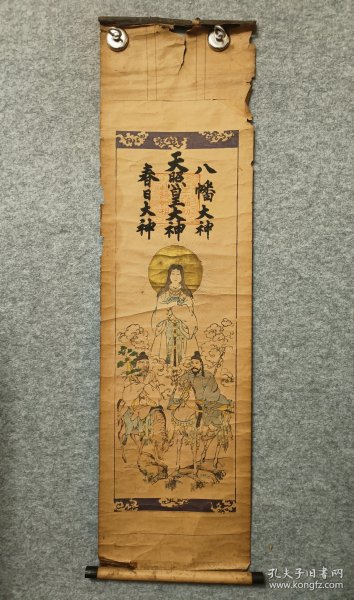 八幡大神
天照皇大神
春日大神
孔夫子旧书网
www.kongfz.com